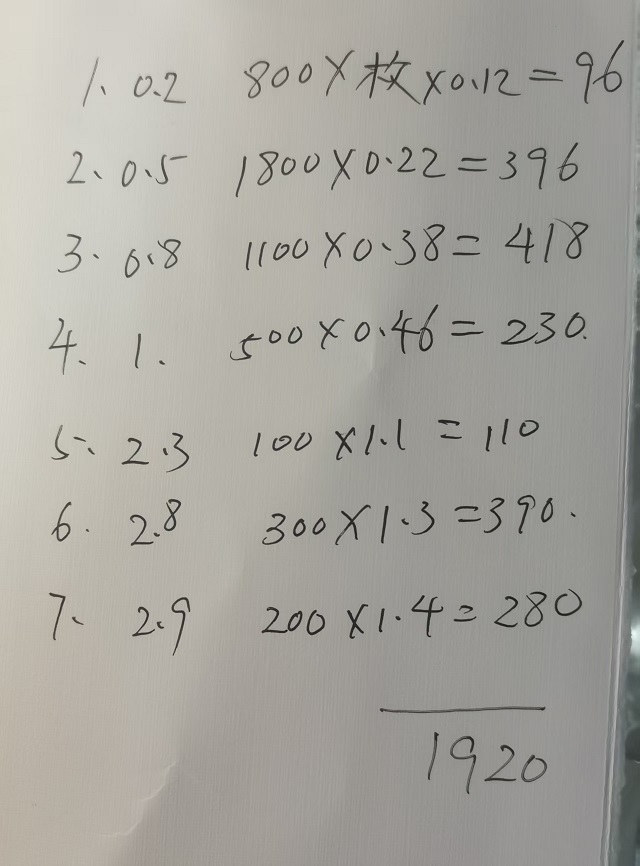 1、0.2 800×枚×0.12=96
2、0.5 1800×0.22=396
3.0.8 1100×0.38=418
4.1. 500×0.46=230.
5、2.3 100×1.1=110
6.2.8 300×1.3=390.
7、2.9 200×1.4=280
1920